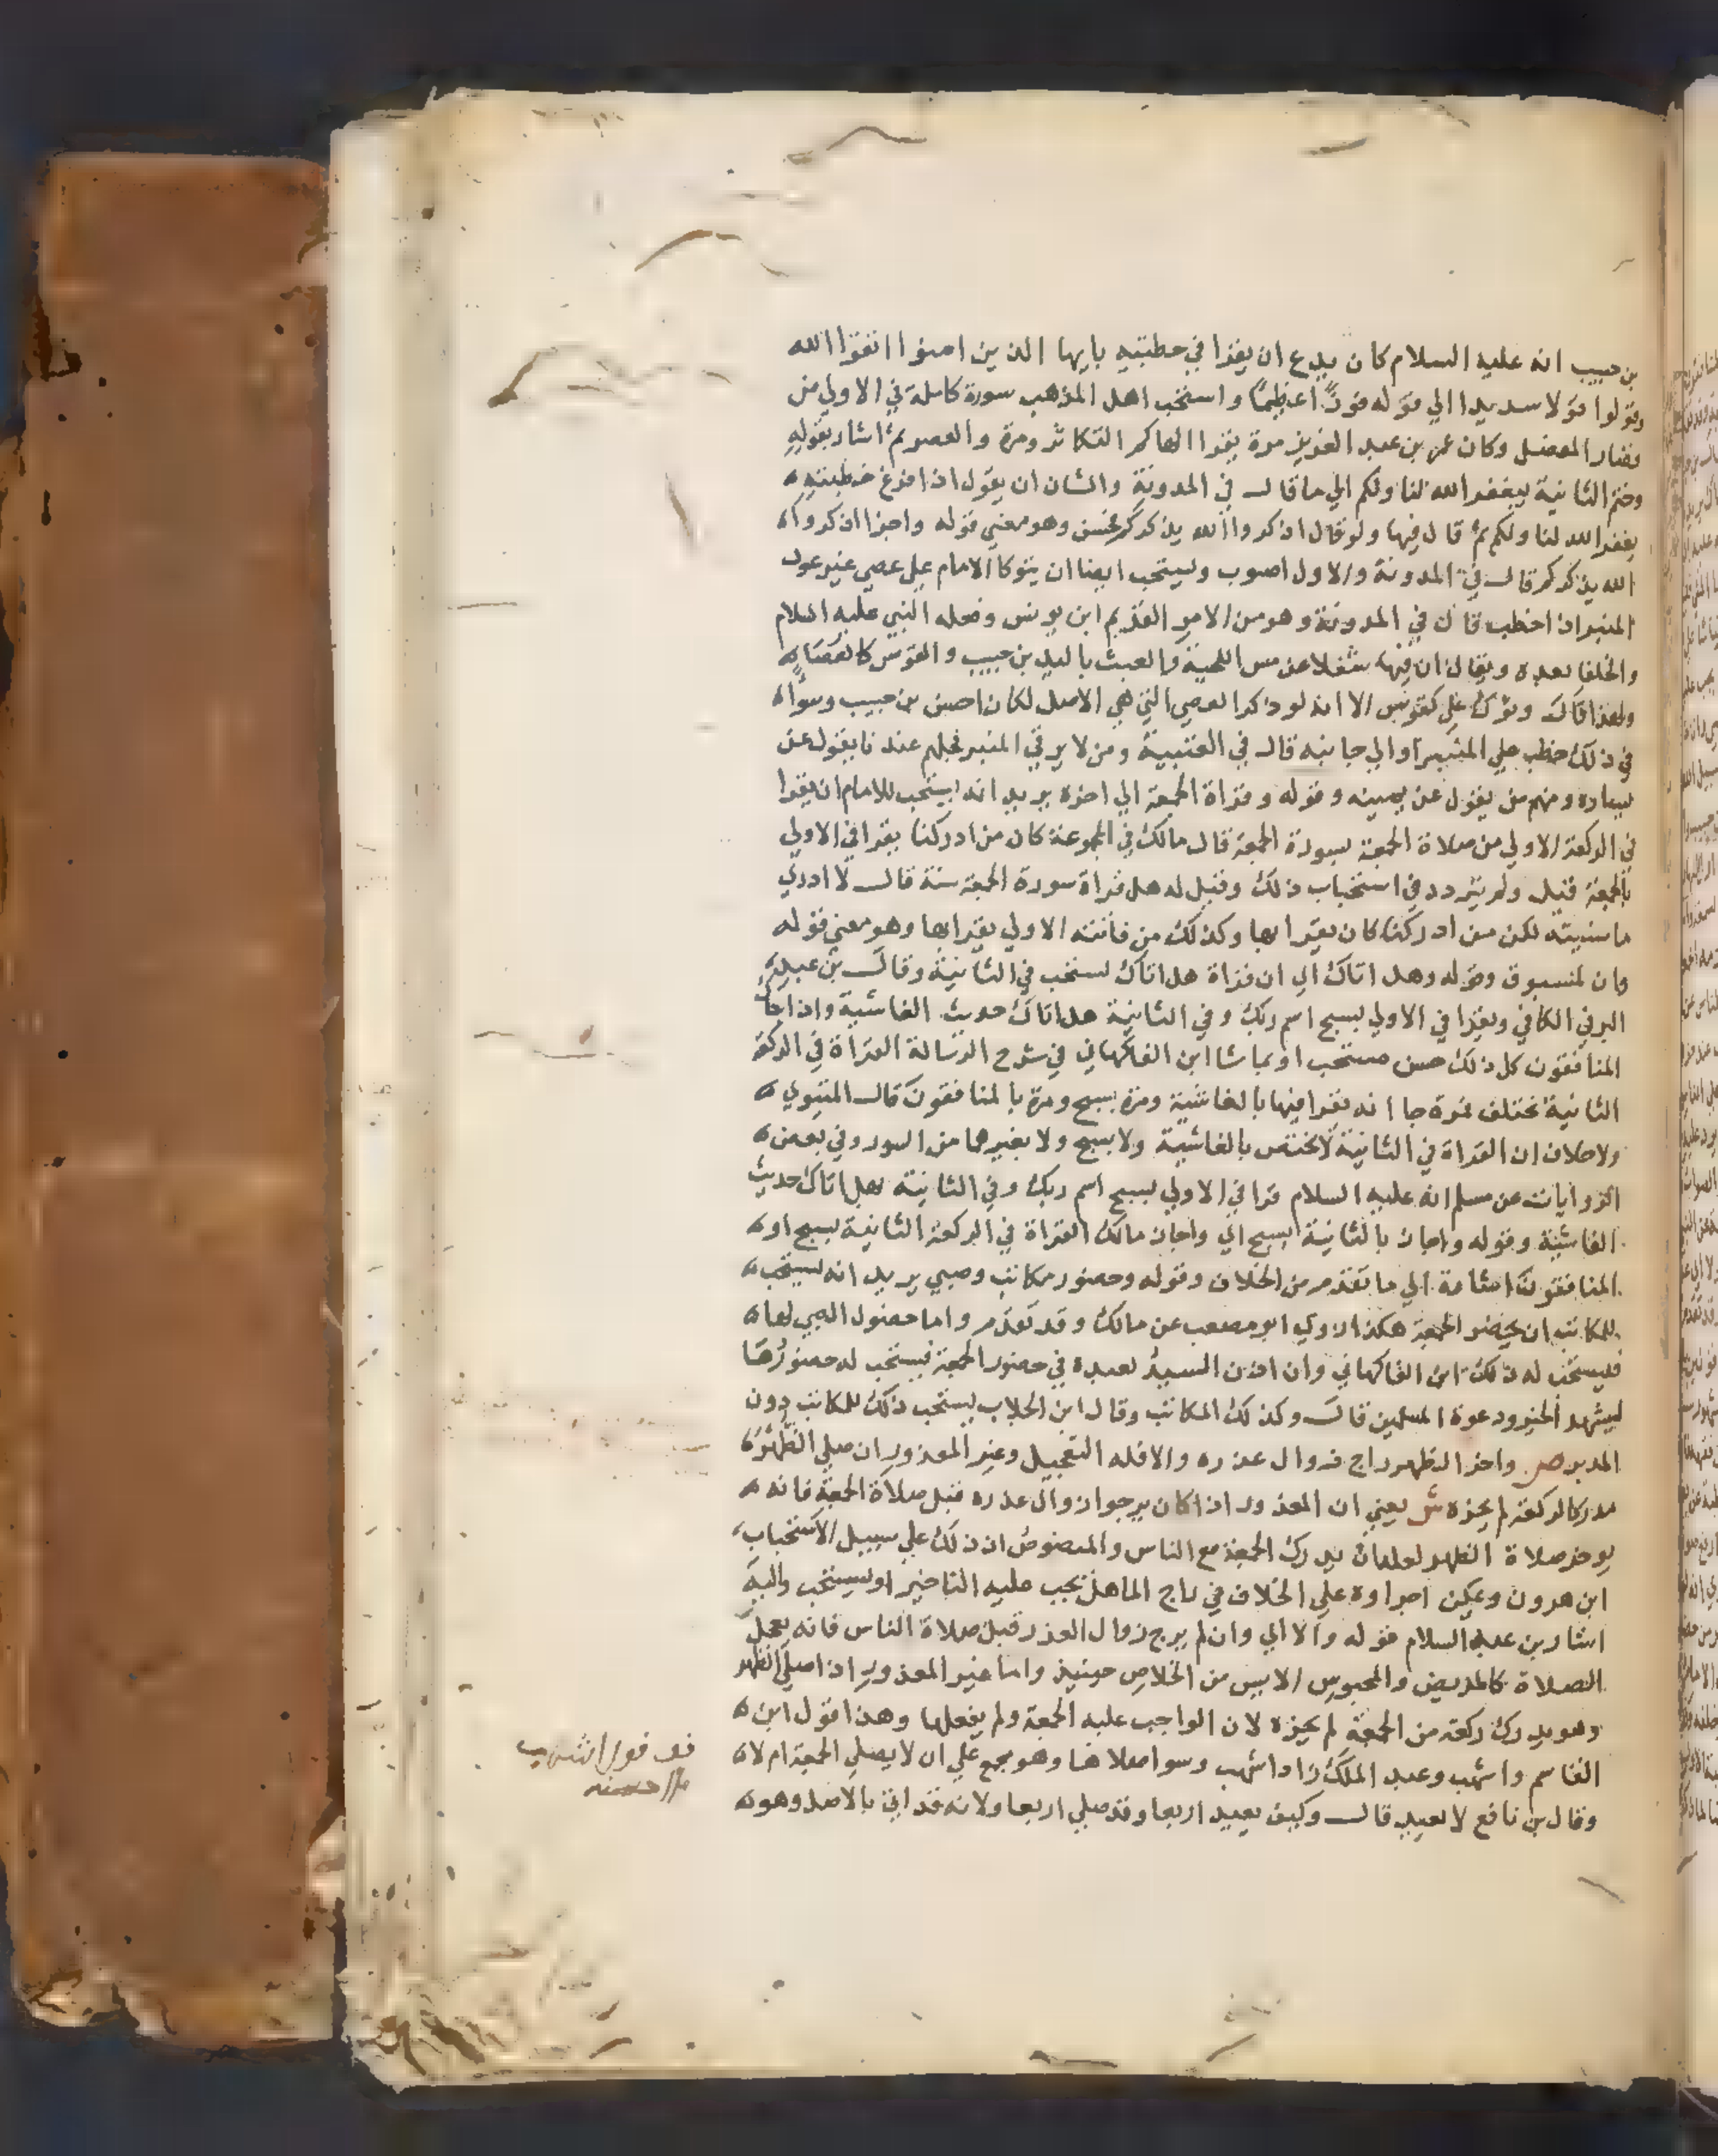 بن حبيب انه عليه السلام كان يدع ان يقرا في خطبته يايها الذين امنوا اتقوا الله
وقولوا قولا سديدا الي قوله فوزًا عظيمًا واستحب اهل المذهب سورة كاملة في الاولي من
قصار المفصل وكان عمر بن عبد العزيز مرة يقرا الهاكم التكاثر ومرة والعصر ثم اشار بقوله
وختم الثانية بيغفر الله لنا ولكم الي ما قال في المدونة والشان ان يقول اذا فرغ خطبته
يغفر الله لنا ولكم ثم قال فيها ولو قال اذكروا الله يذكركم فحسن وهو معني قوله واجزا اذكروا
الله يذكركم قال في المدونة والاول اصوب ويستحب ايضا ان يتوكا الامام علي عصي غير عود
المنبر اذا خطب قال في المدونة وهو من الامر القديم ابن يونس وفعله النبي عليه السلام
والخلفا بعده ويقال ان فيها شغلا عن مس اللحية والعبث باليد بن حبيب والقوس كالعصا
ولهذا قال وتوك علي كقوس الا انه لو ذكر العصي التي هي الاصل لكان احسن بن حبيب وسوا
في ذلك خطب علي المنبر او الي جانبه قال في العتبية ومن لا يرقي المنبر فجلهم عندنا يقول عن
يساره ومنهم من يقول عن يمينه وقوله وقراة الجمعة الي اخره يريد انه يستحب للامام ان يقرا
في الركعة الاولي من صلاة الجمعة بسورة الجمعة قال مالك في المجموعة كان من ادركنا يقرا في الاولي
بالجمعة قيل ولم يتردد في استحباب ذلك وقيل له هل قراة سورة الجمعة سنة قال لا ادري
ما سنيته لكن من ادركنا كان يقرا بها وكذلك من فاتته الاولي يقرا بها وهو معني قوله
وان لمسبوق وقوله وهل اتاك الي ان قراة هل اتاك تستحب في الثانية وقال بن عبد
البر في الكافي ويقرا في الاولي بسبح اسم ربك وفي الثانية هل اتاك حديث الغاشية واذا جاك
المنافقون كل ذلك حسن مستحب او بما شا ابن الفاكهاني في شرح الرسالة القراة في الركعة
الثانية مختلف فمرة جا انه يقرا فيها بالغاشية ومرة بسبح ومرة بالمنافقون قال المتيوي
ولا خلاف ان القراة في الثانية لا تختص بالغاشية ولا بسبح ولا بغيرهما من السور وفي بعض
الروايات عن مسلم انه عليه السلام قرا في الاولي بسبح اسم ربك وفي الثانية بهل اتاك حديث
الغاشية وقوله واجاز بالثانية بسبح اي واجاز مالك القراة في الركعة الثانية بسبح او
المنافقون اشارة الي ما تقدم من الخلاف وقوله وحضور مكاتب وصبي يريد انه يستحب
للمكاتب ان يحضر الجمعة هكذا روي ابو مصعب عن مالك وقد تقدم واما حضور الصبي لها
فيستحب له ذلك ابن الفاكهاني وان اذن السيد لعبده في حضور الجمعة فيستحب له حضورها
ليشهد الخير ودعوة المسلمين قال وكذلك المكاتب وقال ابن الجلاب يستحب ذلك للمكاتب دون
المدبر ص واخر الظهر راج زوال عذره والا فله التعجيل وغير المعذور ان صلي الظهر
مدركا لركعة لم يجزه ش يعني ان المعذور اذا كان يرجو زوال عذره قبل صلاة الجمعة فانه
يوخر صلاة الظهر لعله ان يدرك الجمعة مع الناس والمنصوص ان ذلك علي سبيل الاستحباب
ابن هرون ويمكن اجراوه علي الخلاف في راج الما هل يجب عليه التاخير او يستحب واليه
اشار بن عبد السلام قوله والا اي وان لم يرج زوال العذر قبل صلاة الناس فانه يعجل
الصلاة كالمريض والمحبوس الايس من الخلاص حينيذ واما غير المعذور اذا صلي الظهر
وهو يدرك ركعة من الجمعة لم يجزه لان الواجب عليه الجمعة ولم يفعلها وهذا قول ابن
القاسم واشهب وعبد الملك زاد اشهب وسوا صلاها وهو مجمع علي ان لا يصلي الجمعة ام لا
وقال بن نافع لا يعيد قال وكيف يعيد اربعا وقد صلي اربعا ولانه قد اتي بالاصل وهو
قف قول اشهب